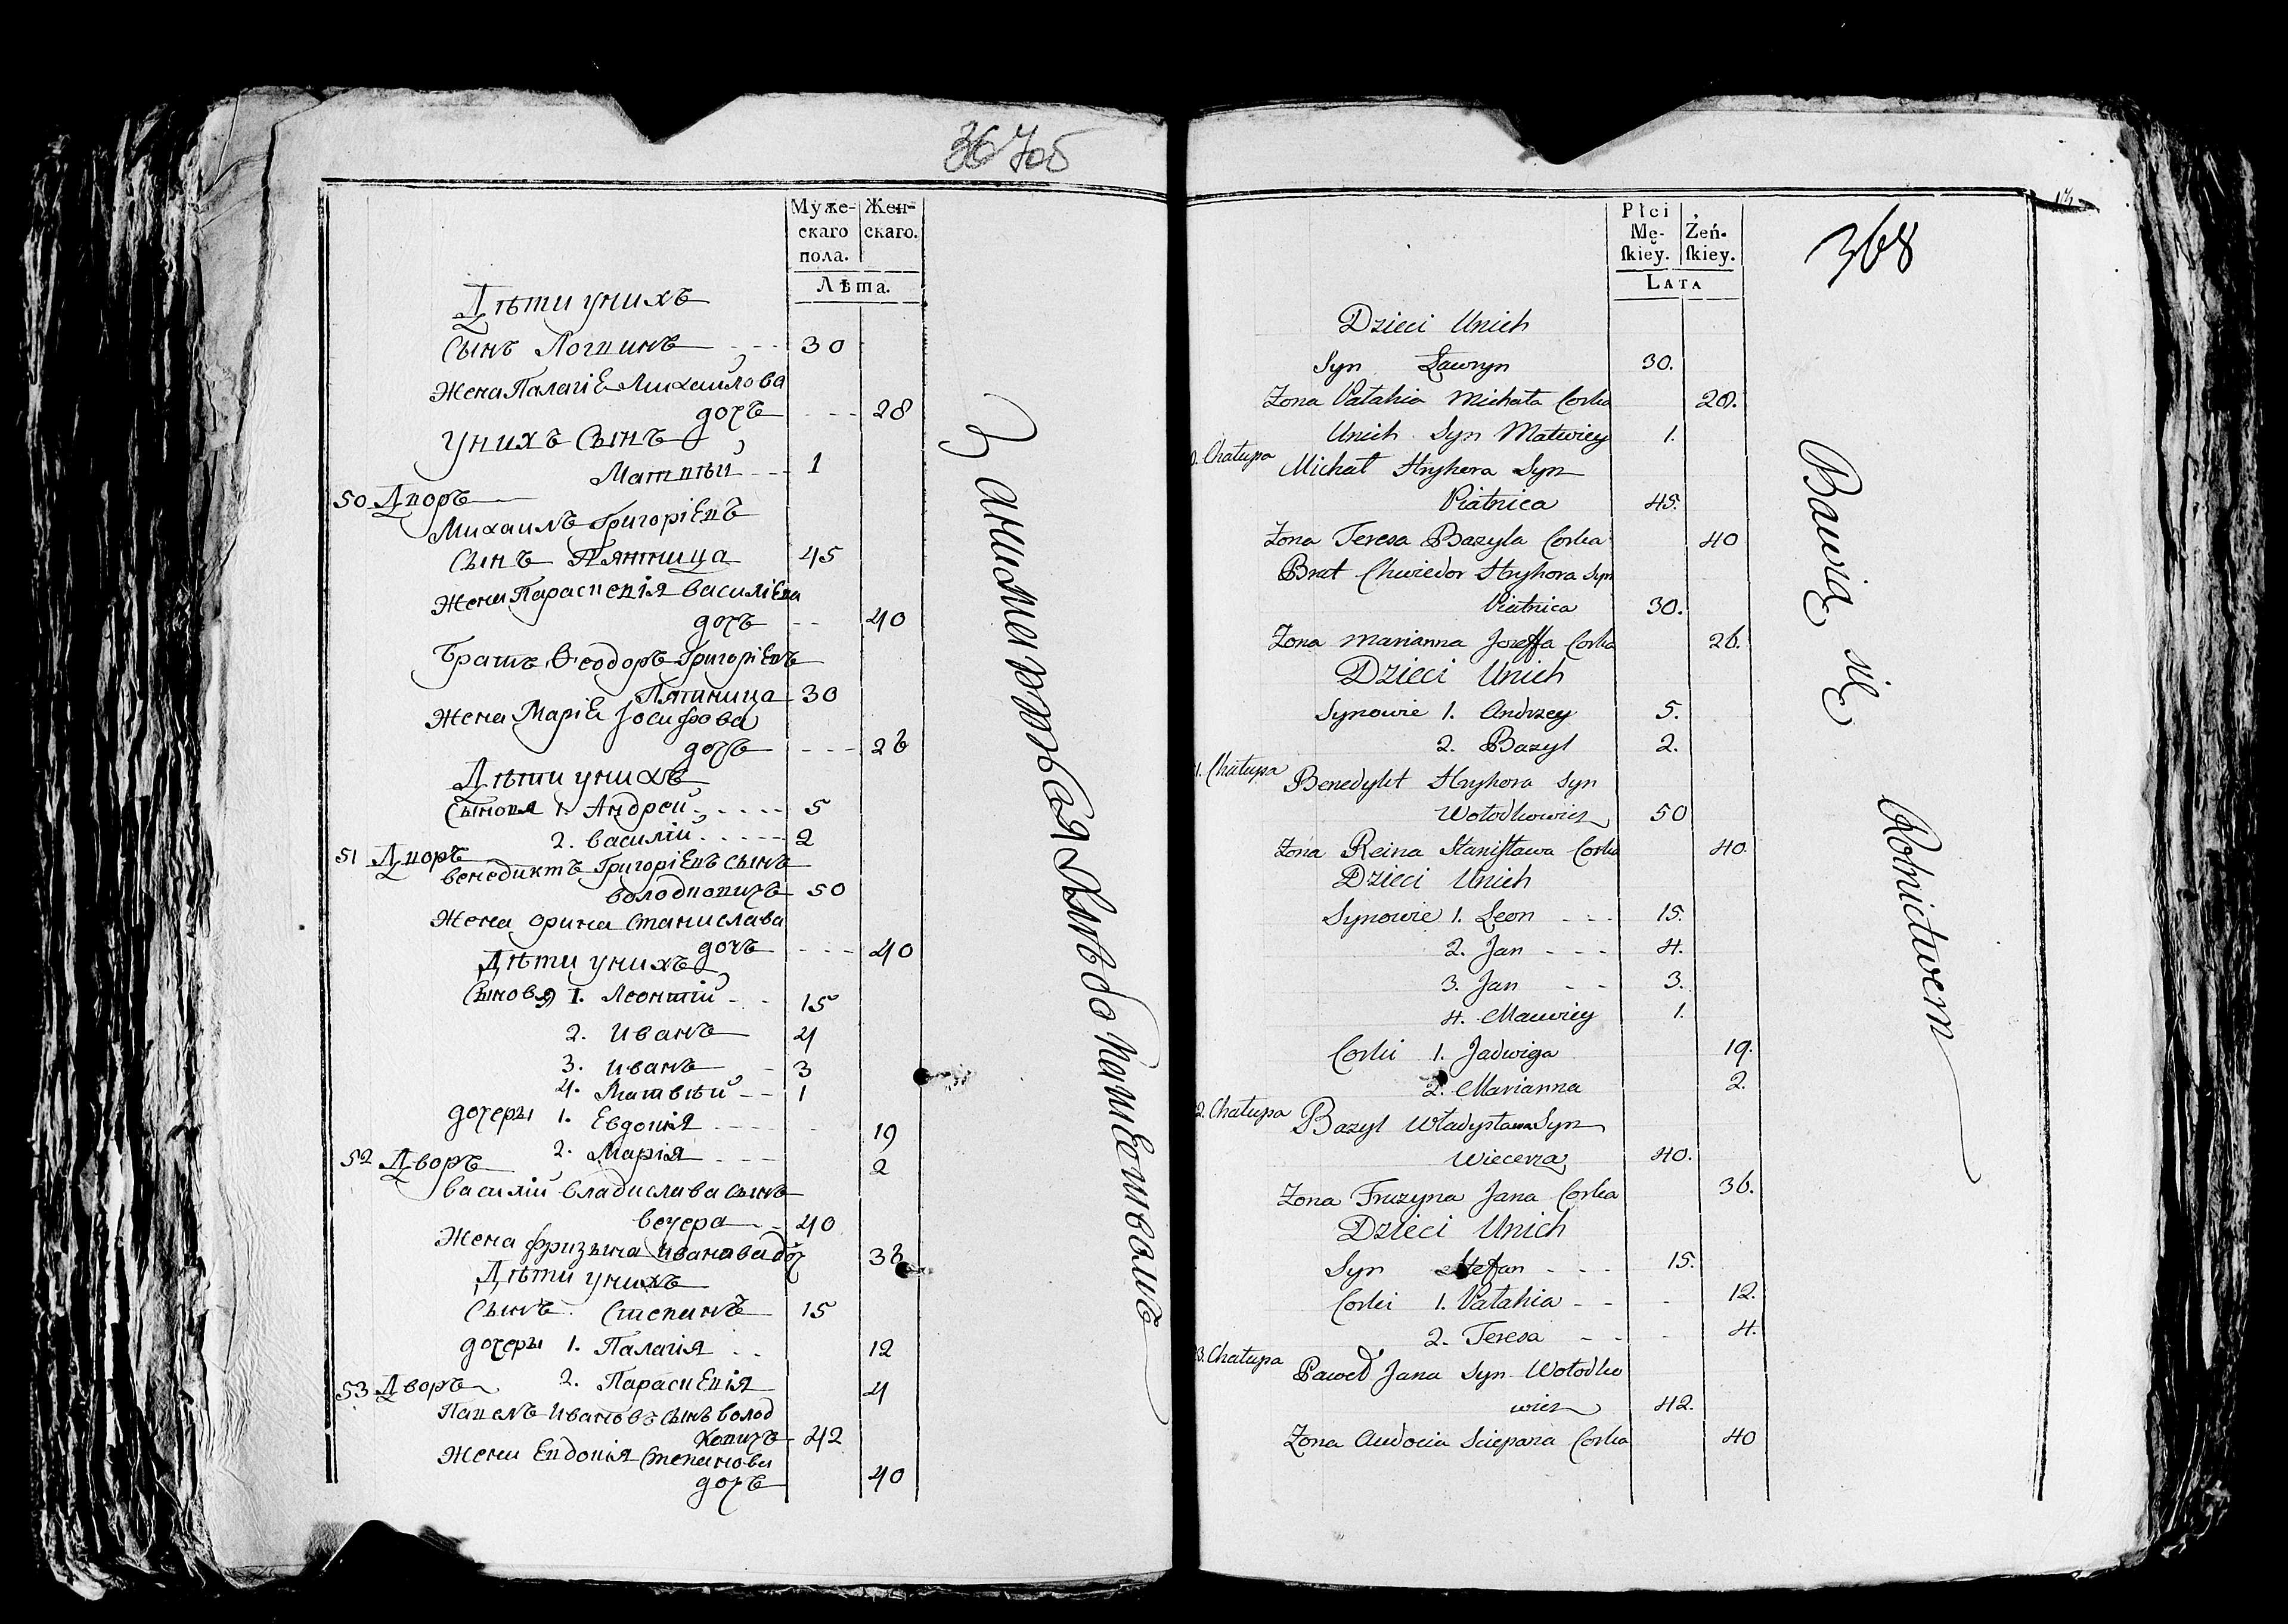 367об
Муже- Жен-
скаго скаго.
пола.
Лѣта.
Дѣти унихъ
Сынъ Логвинъ 30
Жена Палагіе Михайлова
дочъ 28
Унихъ Сынъ
Матвѣй 1
50 Дворъ
Михаилъ Григоріевъ
Сынъ Пятница 45
Жена Парасковія Василіева
дочъ 40
Братъ Ѳеодоръ Григоріевъ
Пятница 30
Жена Маріе Іосифова
дочъ 26
Дѣти унихъ
Сыновя 1. Андрей 5
2. Василій 2
51 Дворъ
Венедиктъ Григоріевъ Сынъ
Володковичъ 50
Жена Орина Станислава
дочъ 40
Дѣти унихъ
Сыновя 1. Леонтій 15
2. Иванъ 4
3. Иванъ 3
4. Матвѣй 1
дочеры 1. Евдокія 19
2. Марія 2
52 Дворъ
Василій Владислава Сынъ
Вечера 40
Жена Фризына Иванава доч 36
Дѣти унихъ
Сынъ Степанъ 15
дочеры 1. Палагія 12
2. Парасковія 4
53 Дворъ
Павелъ Ивановъ Сынъ Волод
ковичъ 42
Жена Евдокія Степанова
дочъ 40
Занимеютъся Хлѣбопашествомъ
13
368
Płci
Mę- Żeń-
ſkiey. ſkiey.
LATA
Dzieci Unich
Syn Ławryn 30.
Zona Pałahia Michała Corka 28.
Unich Syn Matwiey 1.
0. Chałupa
Michał Hryhora Syn
Piatnica 45.
Zona Teresa Bazyla Corka 40
Brat Chwiedor Hryhora Syn
Piatnica 30.
Zona Marianna Jozeffa Corka 26.
Dzieci Unich
Synowie 1. Andrzey 5.
2. Bazyl 2.
1. Chałupa
Benedykt Hryhora Syn
Wołodkowicz 50
Zona Reina Staniſława Corka 40
Dzieci Unich
Synowie 1. Leon 15.
2. Jan 4.
3. Jan 3.
4. Mawiey 1.
Corki 1. Jadwiga 19.
2. Marianna 2.
2. Chałupa
Bazyl Władysława Syn
Wieczerza 40.
Zona Fruzyna Jana Corka 36.
Dzieci Unich
Syn Stefan 15.
Corki 1. Pałahia 12.
2. Teresa 4.
3. Chałupa
Paweł Jana Syn Wołodko
wicz 42.
Zona Audocia Sciepana Corka 40
Bawią się Rolnictwem